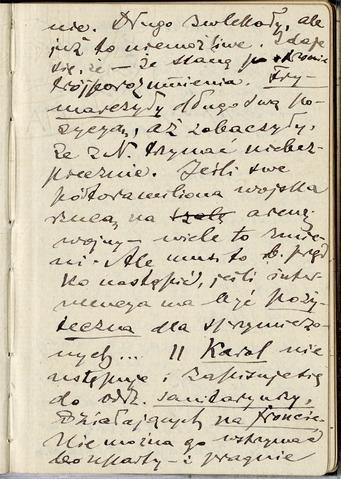 nie. Długo zwlekały, ale
już to niemożliwe. Zdaje
się, że — że staną po stronie
trójporozumienia. Fry-
marczyły długo swą po-
zycyą, aż zobaczyły,
że z N. trzymać niebez-
piecznie. Jeśli swe
półtoramiliona wojska
rzucą na szalę arenę
wojny — wiele to zmie-
ni. Ale musi to b. pręd
ko nastąpić, jeśli inter-
wencya ma być poży-
teczna dla sprzymierzo-
nych... II Karol nie
ustępuje i zapisuje się
do oddz. sanitarnych,
Działających na froncie.
Nie można go wstrzymać
bo uparty — i pragnie